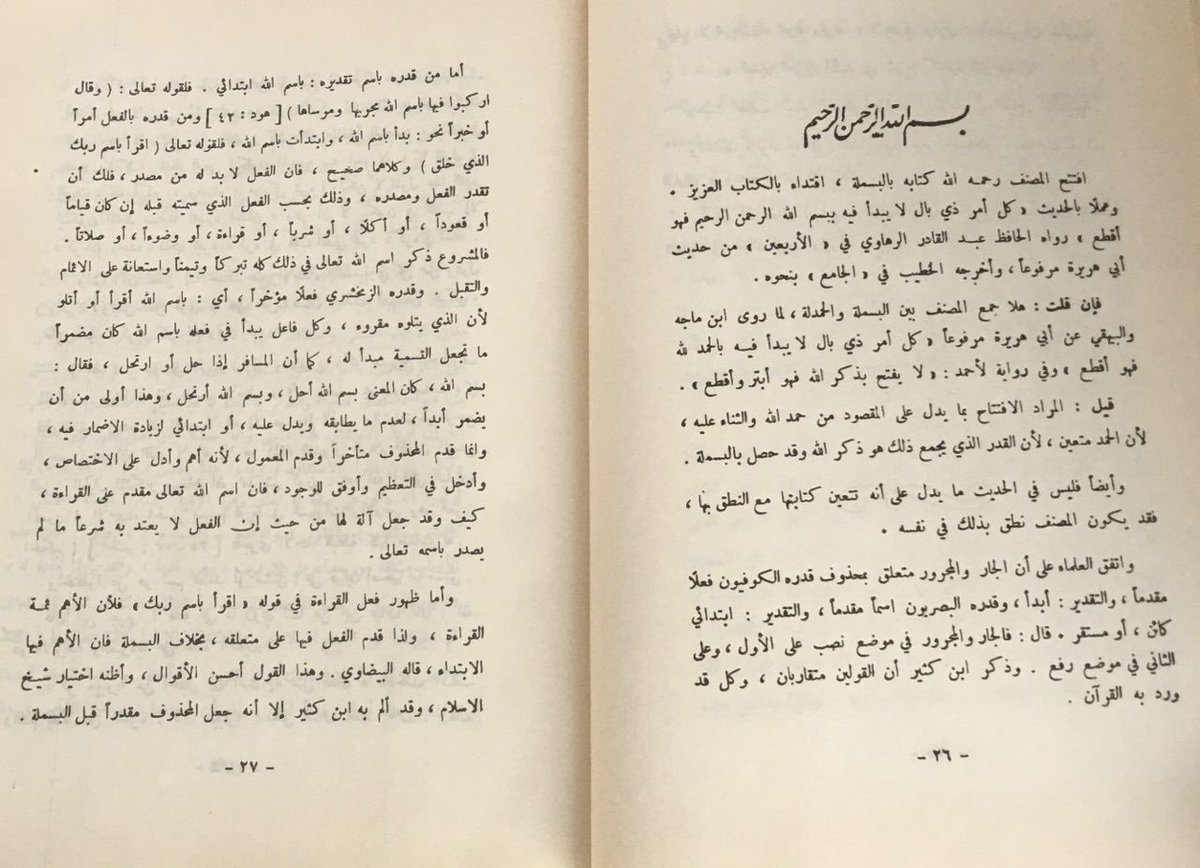 بسم الله الرحمن الرحيم
افتتح المصنف رحمه الله كتابه بالبسملة ، اقتداء بالكتاب العزيز .
وعملًا بالحديث « كل أمر ذي بال لا يبدأ فيه ببسم الله الرحمن الرحيم فهو
أقطع » رواه الحافظ عبد القادر الرهاوي في « الأربعين » من حديث
أبي هريرة مرفوعاً ، وأخرجه الخطيب في « الجامع » بنحوه .
فإن قلت : هلا جمع المصنف بين البسملة والحمدلة ، لما روى ابن ماجه
والبيهقي عن أبي هريرة مرفوعاً « كل أمر ذي بال لا يبدأ فيه بالحمد لله
فهو أقطع » وفي رواية لأحمد : « لا يفتح بذكر الله فهو أبتر وأقطع » .
قيل : المراد الافتتاح بما يدل على المقصود من حمد الله والثناء عليه ،
لأن الحمد متعين ، لأن القدر الذي يجمع ذلك هو ذكر الله وقد حصل بالبسملة .
وأيضاً فليس في الحديث ما يدل على أنه تتعين كتابتها مع النطق بها ،
فقد يكون المصنف نطق بذلك في نفسه .
واتفق العلماء على أن الجار والمجرور متعلق بمحذوف قدره الكوفيون فعلًا
مقدماً ، والتقدير : أبدأ ، وقدره البصريون اسماً مقدماً ، والتقدير : ابتدائي
كائن ، أو مستقر . قال : فالجار والمجرور في موضع نصب على الأول ، وعلى
الثاني في موضع رفع . وذكر ابن كثير أن القولين متقاربان ، وكل قد
ورد به القرآن .
- ٢٦ -
أما من قدره باسم تقديره : باسم الله ابتدائي . فلقوله تعالى : ( وقال
اركبوا فيها باسم الله مجريها ومرساها ) [ هود : ٤٢ ] ومن قدره بالفعل أمراً
أو خبراً نحو : بدأ باسم الله ، وابتدأت باسم الله ، فلقوله تعالى ( اقرأ باسم ربك
الذي خلق ) وكلاهما صحيح ، فان الفعل لا بد له من مصدر ، فلك أن
تقدر الفعل ومصدره ، وذلك بحسب الفعل الذي سميته قبله إن كان قياماً
أو قعوداً ، أو أكلًا ، أو شرباً ، أو قراءة ، أو وضوءاً ، أو صلاتاً .
فالمشروع ذكر اسم الله تعالى في ذلك كله تبركاً وتيمناً واستعانة على الاتمام
والتقبل . وقدره الزمخشري فعلًا مؤخراً ، أي : باسم الله أقرأ أو أتلو
لأن الذي يتلوه مقروء ، وكل فاعل يبدأ في فعله باسم الله كان مضمراً
ما تجعل التسمية مبدأ له ، كما أن المسافر إذا حل أو ارتحل ، فقال :
بسم الله ، كان المعنى بسم الله أحل ، وبسم الله أرتحل ، وهذا أولى من أن
يضمر أبدأ ، لعدم ما يطابقه ويدل عليه ، أو ابتدائي لزيادة الاضمار فيه ،
وانما قدم المحذوف متأخراً وقدم المعمول ، لأنه أهم وأدل على الاختصاص ،
وأدخل في التعظيم وأوفق للوجود ، فان اسم الله تعالى مقدم على القراءة ،
كيف وقد جعل آلة لها من حيث إن الفعل لا يعتد به شرعاً ما لم
يصدر باسمه تعالى .
وأما ظهور فعل القراءة في قوله « اقرأ باسم ربك » فلأن الأهم ثمة
القراءة ، ولذا قدم الفعل فيها على متعلقه ، بخلاف البسملة فان الأهم فيها
الابتداء ، قاله البيضاوي . وهذا القول أحسن الأقوال ، وأظنه اختيار شيخ
الاسلام ، وقد ألم به ابن كثير إلا أنه جعل المحذوف مقدراً قبل البسملة .
- ٢٧ -